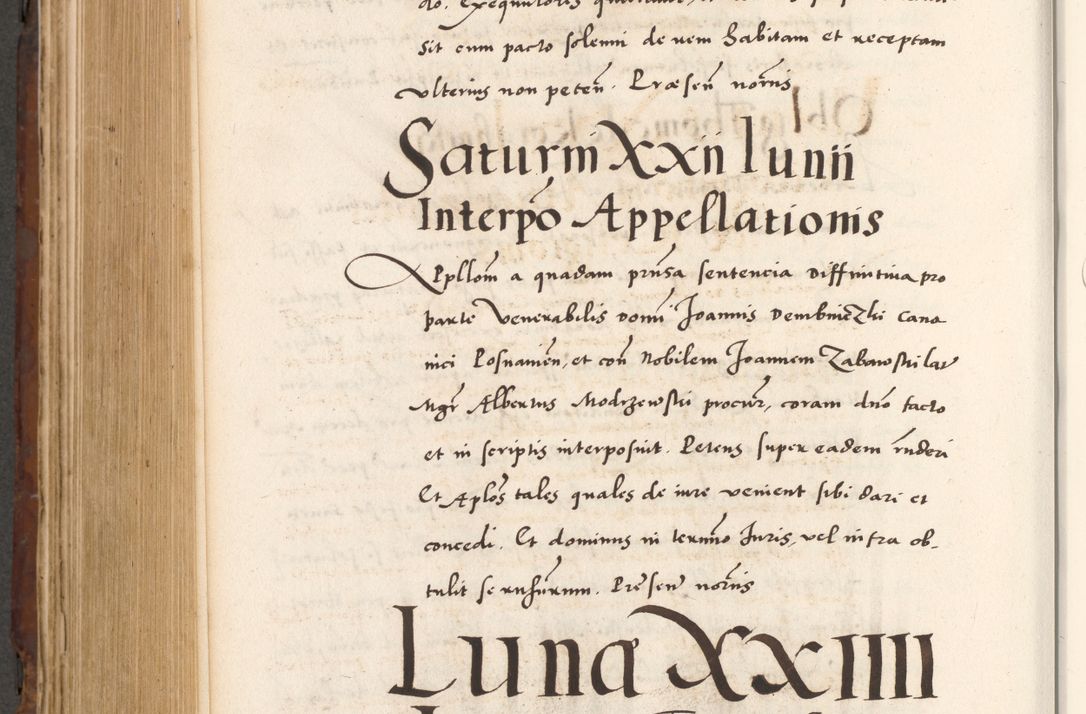 Sit eum pacto solenni de rem habitam et receptam
vlterius non peteñ. Præseñ nornis
Saturni XXII Iunii
Interpõ Appellationis
Apllom a quadam prnsa sentencia Diffinitiua pro
parte Venerabilis Domi Joannis Dembniczki Cano
nici Posnanieñ, et coñ Nobilem Joannem Zabawski lar
Mgr Albertus Modrzewski procur, coram dno facto
et in scriptis interposuit. Petens super eadem rnderi
Et Aplos tales quales de iure venient sibi dari et
concedi. Et dominus in termino Juris, vel infra ob-
tulit se rnsurum. Presen nornis
Luna XXIIII